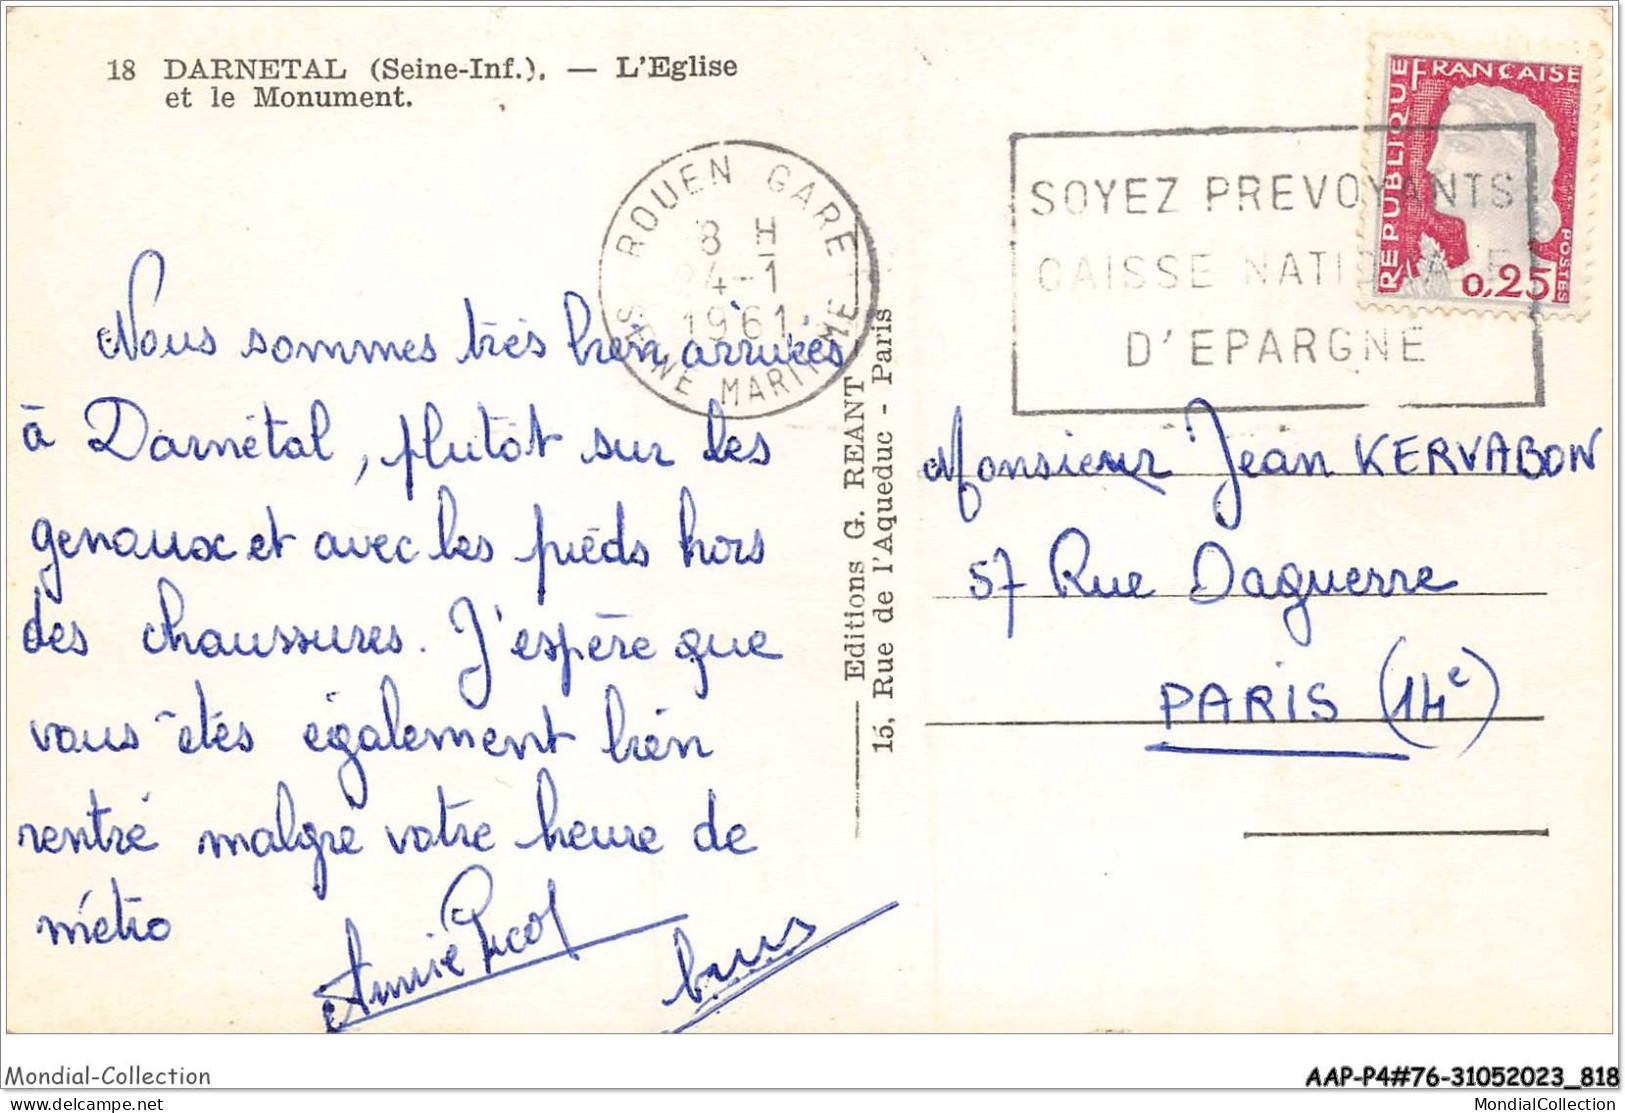 18 DARNETAL (Seine-Inf.). — L'Eglise
et le Monument.
ROUEN GARE
8 H
24-1
1961
SEINE MARITIME
SOYEZ PREVOYANTS
CAISSE NATIONALE
D'EPARGNE
REPUBLIQUE FRANCAISE
POSTES
0,25
Nous sommes très bien arrivées
à Darnétal, plutôt sur les
genoux et avec les pieds hors
des chaussures. J'espère que
vous êtes également bien
rentré malgré votre heure de
métro
Annie
Editions G. REANT
15, Rue de l'Aqueduc - Paris
Monsieur Jean KERVABON
57 Rue Daguerre
PARIS (14e)
Mondial-Collection
AAP-P4#76-31052023_818
delcampe.net
MondialCollection